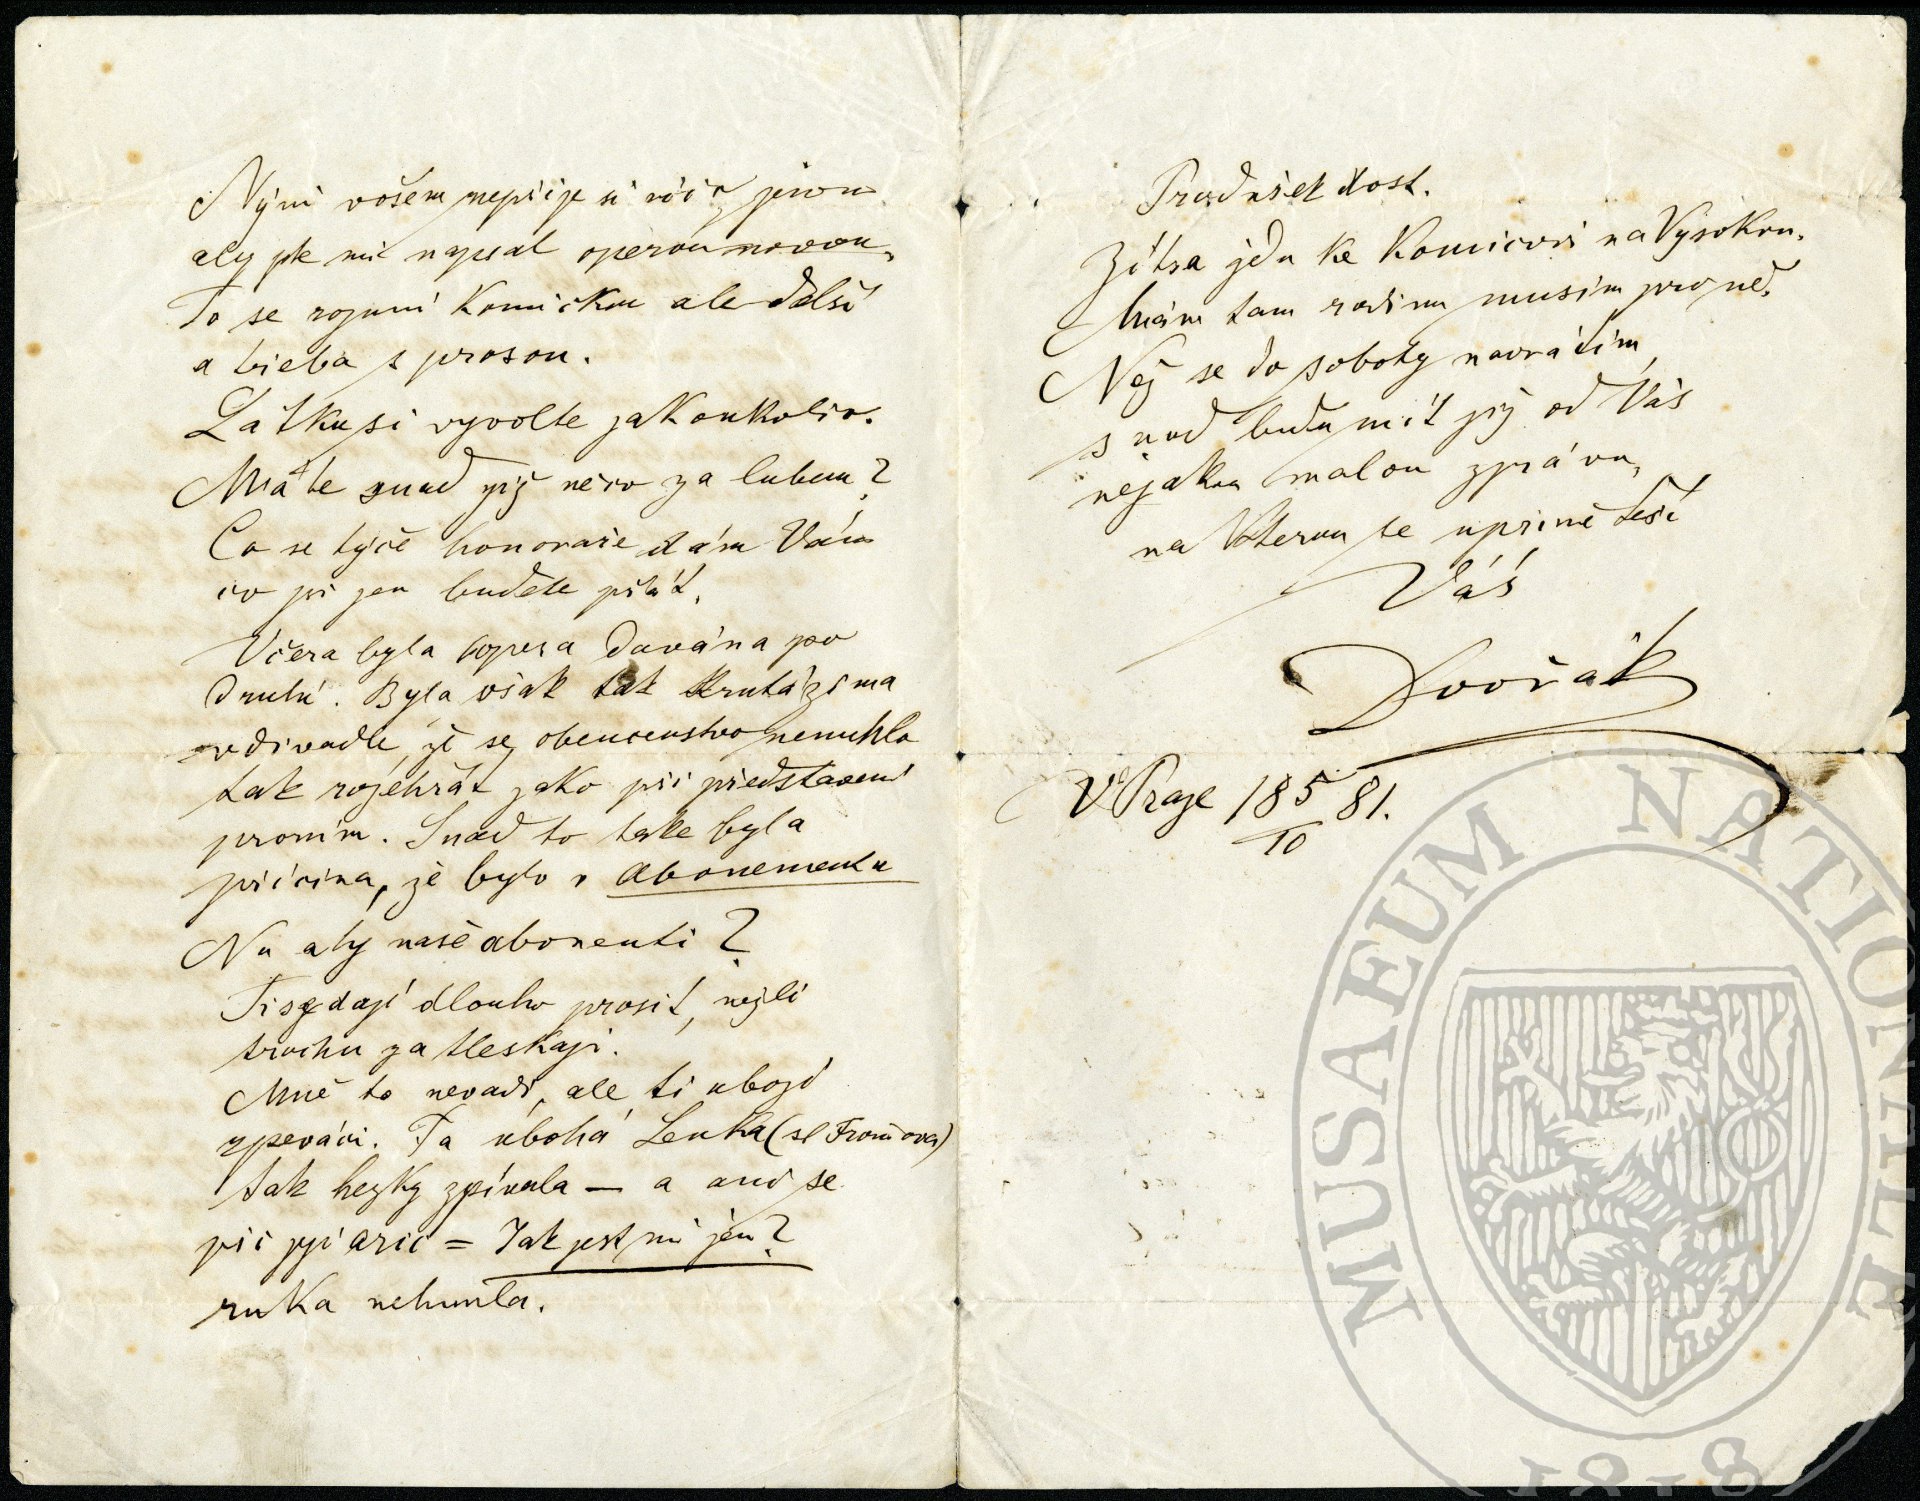 Nyní všem nepřeje si nic jenom
aby jste mi napsal operu novou.
To se rozumí Komickou ale delší
a třeba s prosou.
Látku si vyvolte jakoukoliv.
Máte snad již něco za lubem?
Co se týče honoraře dám Vám
co si jen budete přát.
Včera byla opera davána po
druhé. Byla však tak krutá zima
v divadle, že se obecenstvo nemohlo
tak rozehřát jako při představení
prvním. Snad to take byla
příčina, že bylo v Abonementu
Nu a ty naše abonenti?
Ti se dají dlouho prosit, nežli
trochu zatleskají.
Mně to nevadí, ale ti ubozí
zpěváci. Ta ubohá Lenka (sl Fronova)
tak hezky zpívala — a ani se
při její arii = Jak jest mi jen?
ruka nehnula.
Pro dnešek dost.
Zítra jdu ke Kounicovi na Vysokou.
Mám tam rodinu musím pro ně.
Než se do soboty navrátím,
snad budu mít již od Vás
nějakou malou zprávu,
na kterou se upřímě těší
Váš
Dvořák
V Praze 18 5/10 81.
MUSAEUM NATIONALE
1818